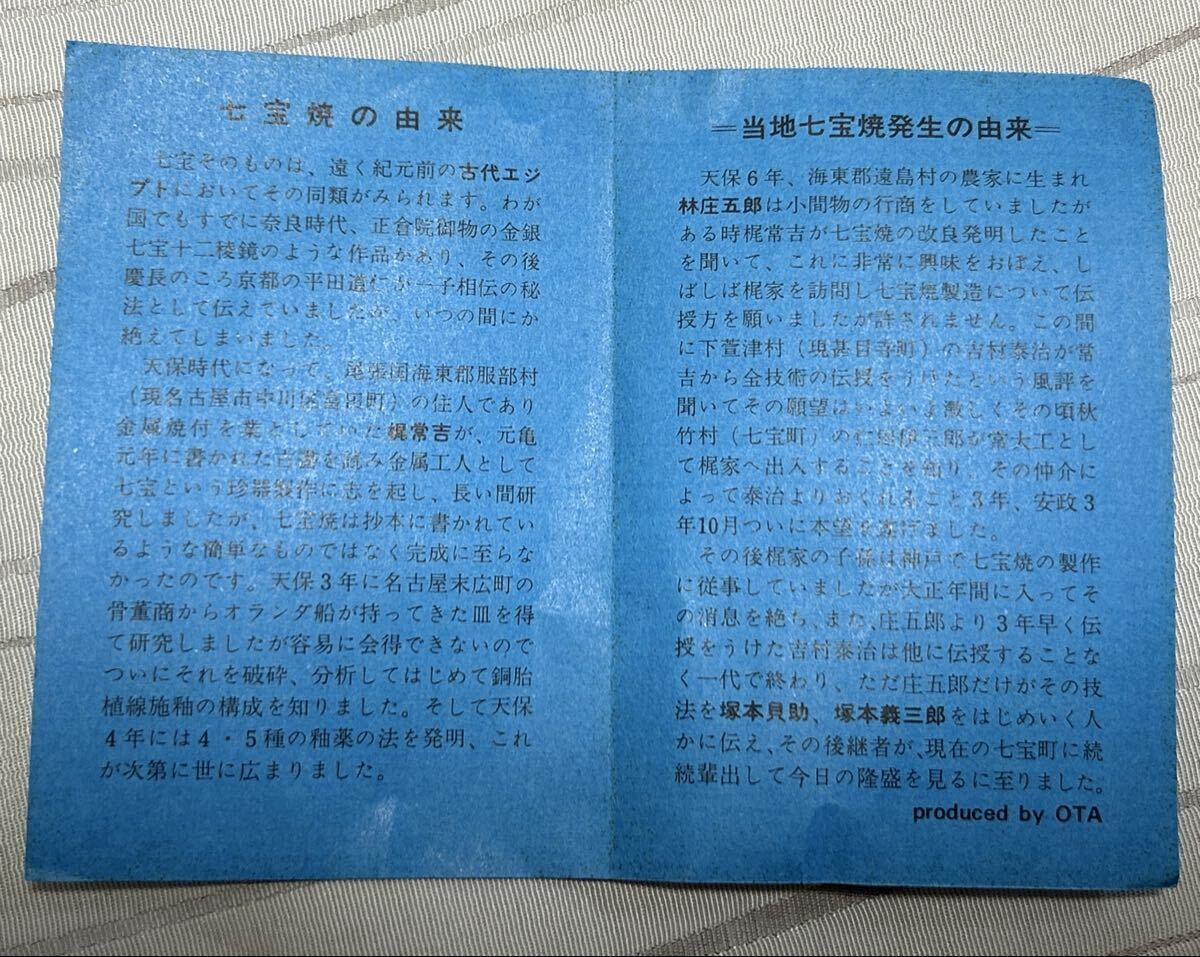 七宝焼の由来
七宝そのものは、遠く紀元前の古代エジ
プトにおいてその同類がみられます。わが
国でもすでに奈良時代、正倉院御物の金銀
七宝十二稜鏡のような作品があり、その後
慶長のころ京都の平田道仁が一子相伝の秘
法として伝えていましたが、いつの間にか
絶えてしまいました。
天保時代になって、尾張国海東郡服部村
（現名古屋市中川区富田町）の住人であり
金属焼付を業としていた梶常吉が、元亀
元年に書かれた古書を読み金属工人として
七宝という珍器製作に志を起し、長い間研
究しましたが、七宝焼は抄本に書かれてい
るような簡単なものではなく完成に至らな
かったのです。天保3年に名古屋末広町の
骨董商からオランダ船が持ってきた皿を得
て研究しましたが容易に会得できないので
ついにそれを破砕、分析してはじめて銅胎
植線施釉の構成を知りました。そして天保
4年には4・5種の釉薬の法を発明、これ
が次第に世に広まりました。
＝当地七宝焼発生の由来＝
天保6年、海東郡遠島村の農家に生まれ
林庄五郎は小間物の行商をしていましたが
ある時梶常吉が七宝焼の改良発明したこと
を聞いて、これに非常に興味をおぼえ、し
ばしば梶家を訪問し七宝焼製造について伝
授方を願いましたが許されません。この間
に下萱津村（現甚目寺町）の吉村泰治が常
吉から全技術の伝授をうけたという風評を
聞いてその願望はいよいよ激しくその頃秋
竹村（七宝町）の仁郷伊三郎が常大工とし
て梶家へ出入することを知り、その仲介に
よって泰治よりおくれること3年、安政3
年10月ついに本望を遂げました。
その後梶家の子孫は神戸で七宝焼の製作
に従事していましたが大正年間に入ってそ
の消息を絶ち、また、庄五郎より3年早く伝
授をうけた吉村泰治は他に伝授することな
く一代で終わり、ただ庄五郎だけがその技
法を塚本貝助、塚本義三郎をはじめいく人
かに伝え、その後継者が、現在の七宝町に続
続輩出して今日の隆盛を見るに至りました。
produced by OTA